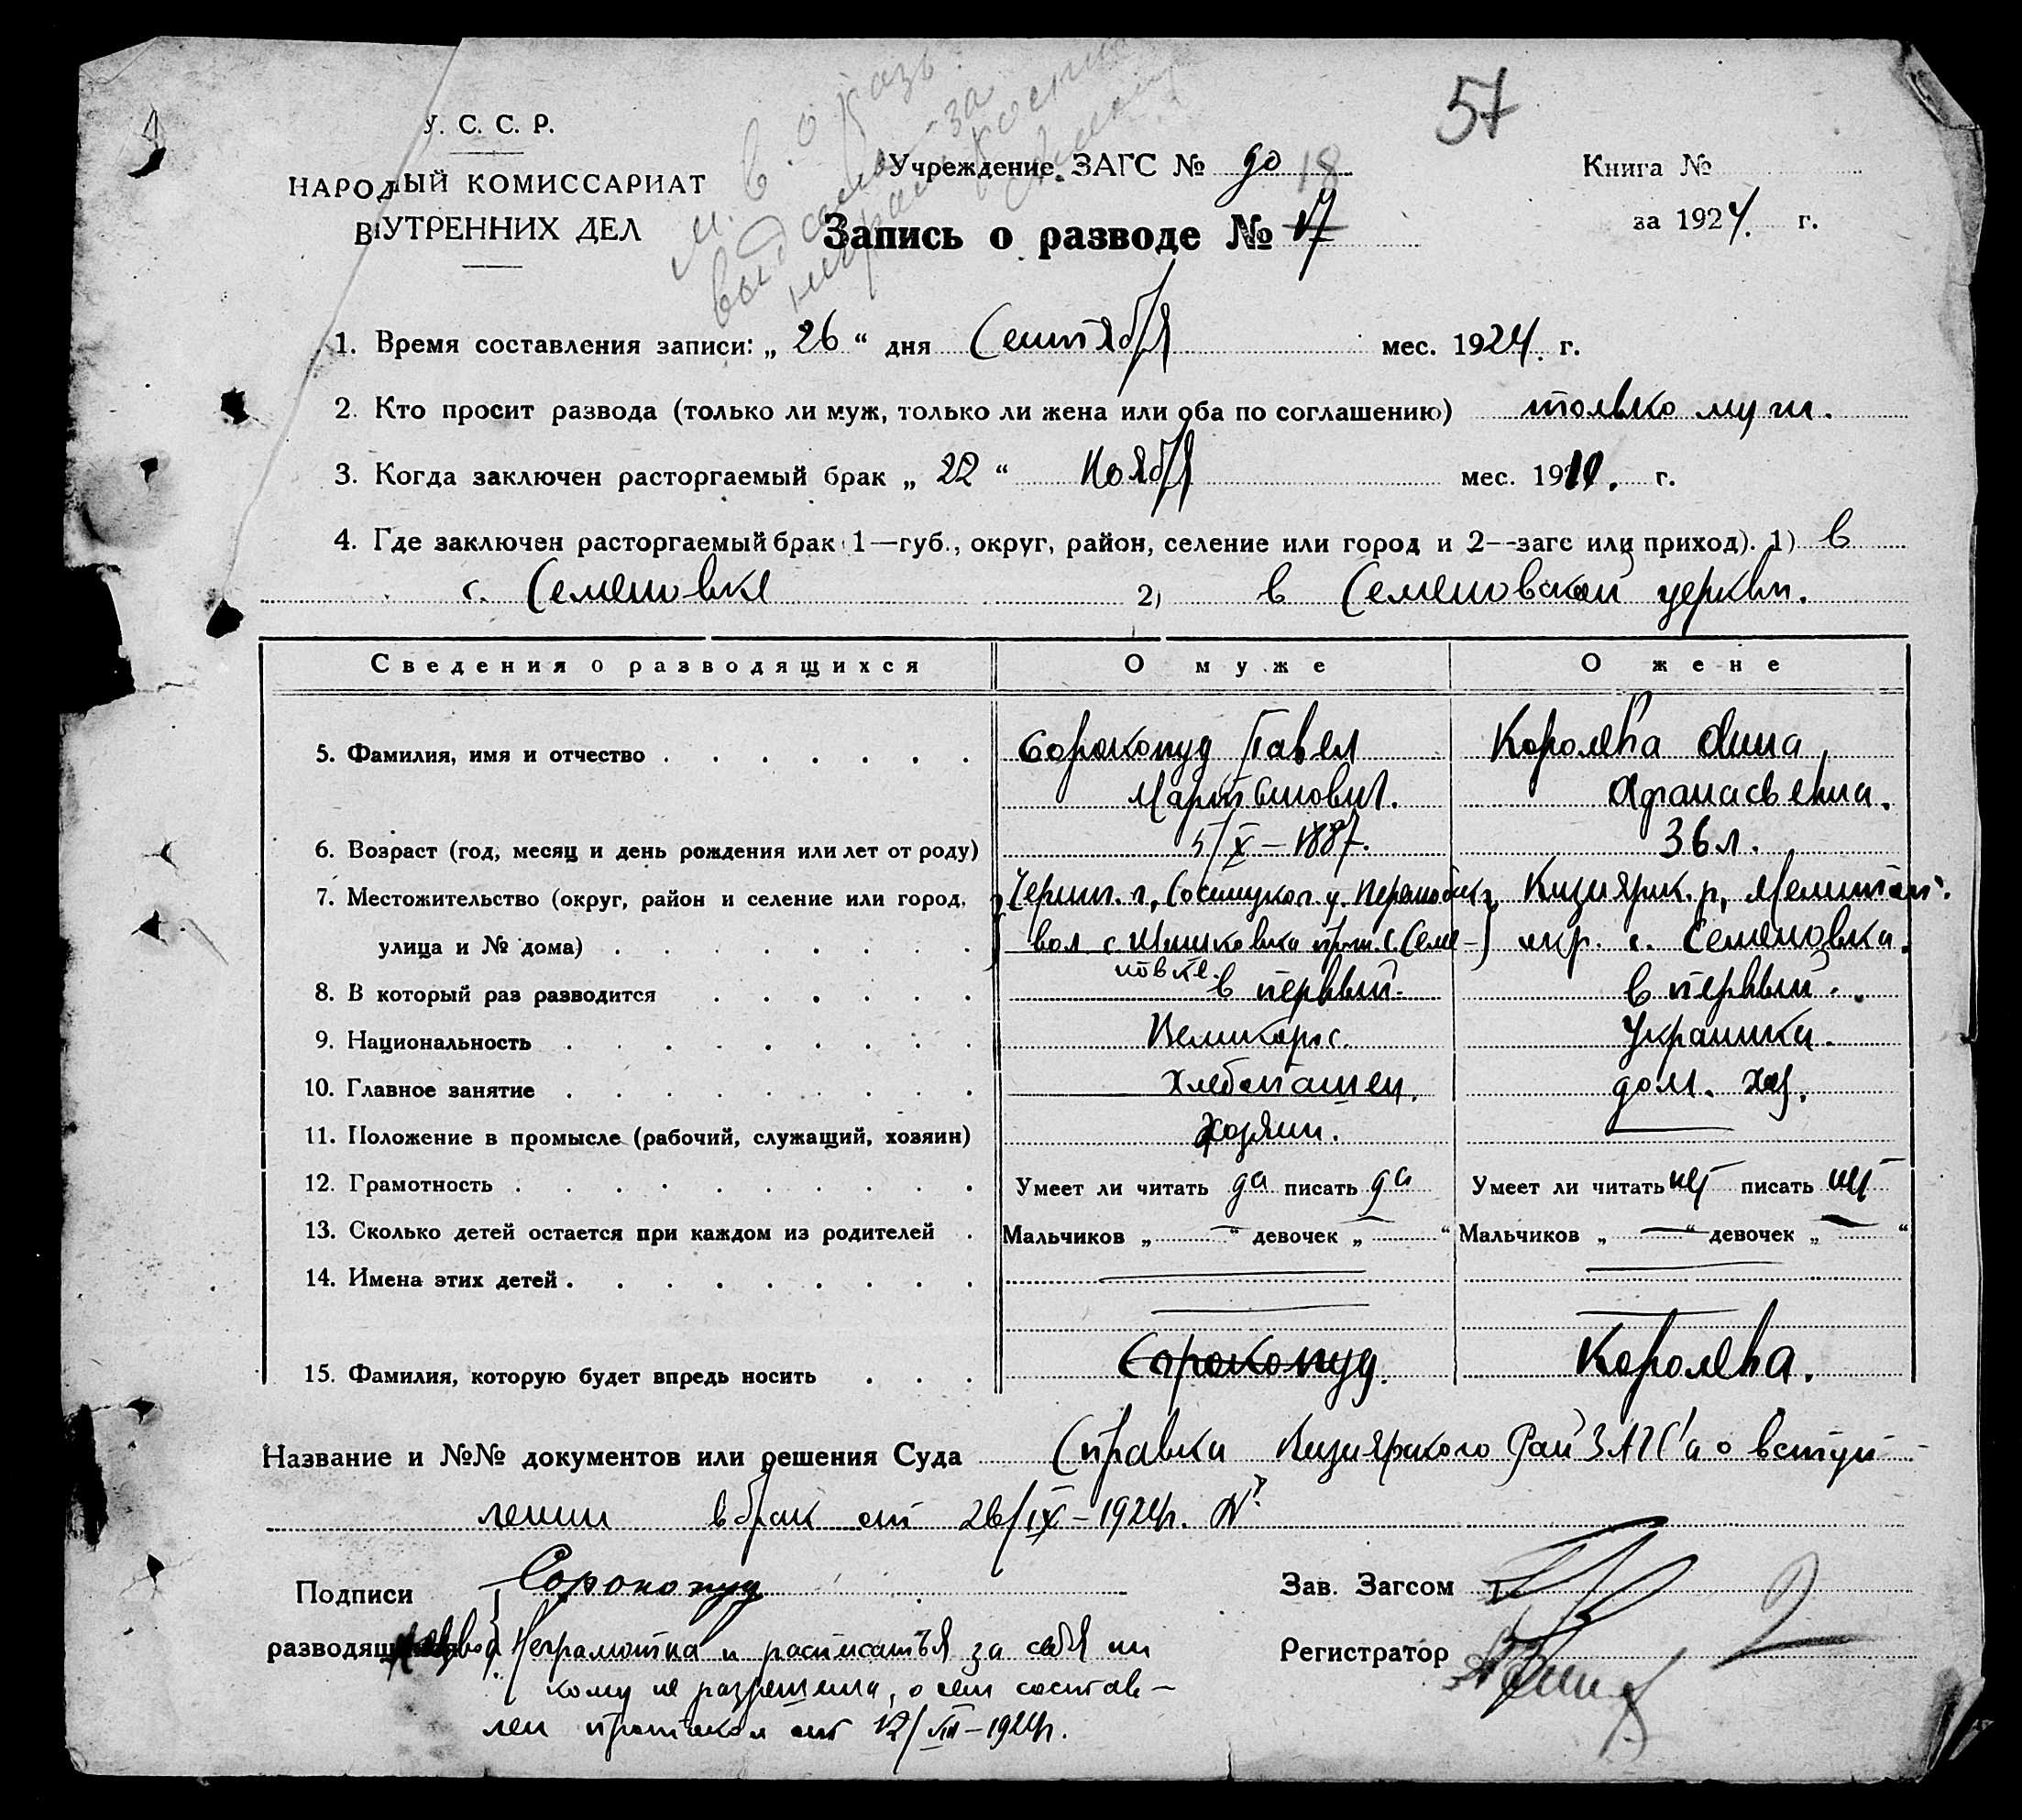 57
У. С. С. Р.
НАРОДНЫЙ КОМИССАРИАТ
ВНУТРЕННИХ ДЕЛ
Учреждение ЗАГС № 90
18
Книга №
за 1924. г.
Запись о разводе № 17
1. Время составления записи: „ 26 “ дня Сентября мес. 1924. г.
2. Кто просит развода (только ли муж, только ли жена или оба по соглашению) только муж.
3. Когда заключен расторгаемый брак „ 22 “ Ноября мес. 19 г.
4. Где заключен расторгаемый брак 1—губ., округ, район, селение или город и 2—загс или приход). 1) в
с. Семеновке 2) в Семеновской церкви.
Сведения о разводящихся О муже О жене
5. Фамилия, имя и отчество Сорокопуд Павел Королева Анна
Мартынович. Афанасьевна.
6. Возраст (год, месяц и день рождения или лет от роду) 5/X – 1887. 36 л.
7. Местожительство (округ, район и селение или город, Черниг. г., Сосницкого у. Кизиярск. р, Мелитоп.
улица и № дома) вол. с. прож. с. Семе- окр. с. Семеновка.
новке.
8. В который раз разводится в первый. в первый.
9. Национальность Великорос. Украинка.
10. Главное занятие Хлебопашец. дом. хоз.
11. Положение в промысле (рабочий, служащий, хозяин) Хозяин. —
12. Грамотность Умеет ли читать да писать да Умеет ли читать нет писать нет
13. Сколько детей остается при каждом из родителей Мальчиков „ — “ девочек „ — “ Мальчиков „ — “ девочек „ — “
14. Имена этих детей — —
15. Фамилия, которую будет впредь носить Сорокопуд. Королева.
Название и №№ документов или решения Суда Справка Кизиярского РайЗАГС'а о вступ-
лении в брак от 26/IX – 1924 г. №
Подписи Сорокопуд Зав. Загсом
разводящихся Неграмотна и расписаться за себя ни Регистратор
кому не разрешила, о чем состав-
лен протокол от 12/VIII – 1924 г.
2